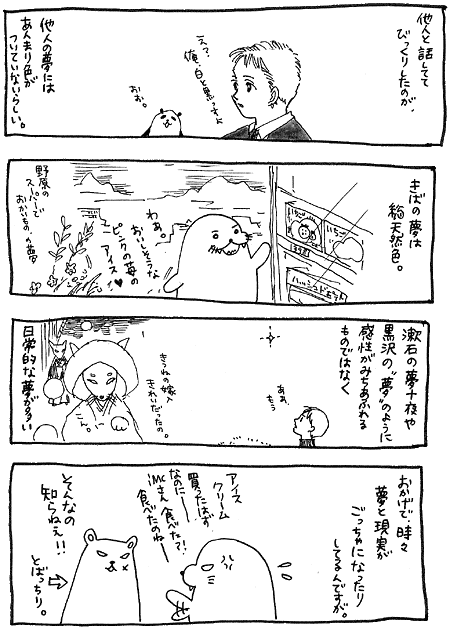 他人と話してて
びっくりしたのが、
え？
俺、白と黒っすよ
おお。
他人の夢には
あんまり色が
ついていないらしい。
きばの夢は
総天然色。
いちご
いちご
わあ。
おいしそうな
ピンクの苺の
アイス♥
野原の
スーパーで
おかいもの、の夢
漱石の夢十夜や
黒沢の"夢"のように
感性がみちあふれる
ものではなく
ああ、
もう
きつねの嫁入
きれいだったの。
こんこん
日常的な夢が多い
おかげで、時々
夢と現実が
ごっちゃになったり
してるんですが。
アイス
クリーム
買ったはず
なのにー
iMcさん食べた？！
食べたのねー
そんなの
知らねぇ！！
とばっちり。